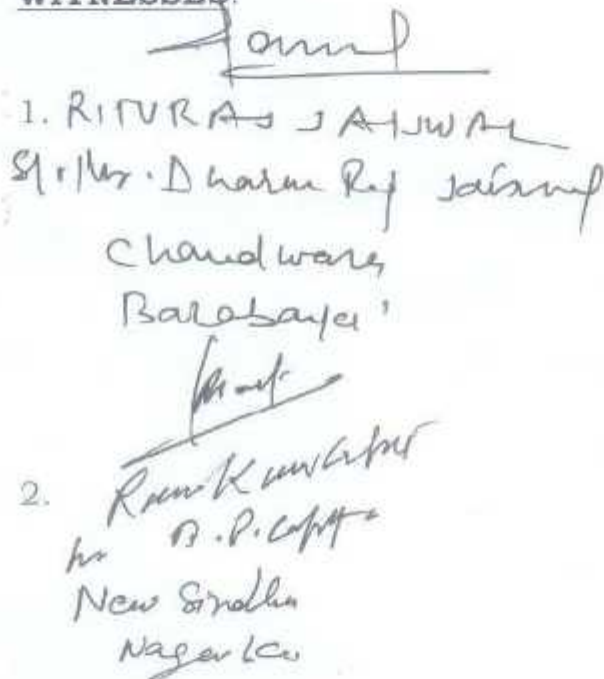 WITNESSES:
1. RITURAJ JAISWAL
S/o Mr. Dharm Raj Jaiswal
Chandwara
Barabanki
2. Ram Kumar Gupta
B.P. Gupta
New Sindhu
Nagar